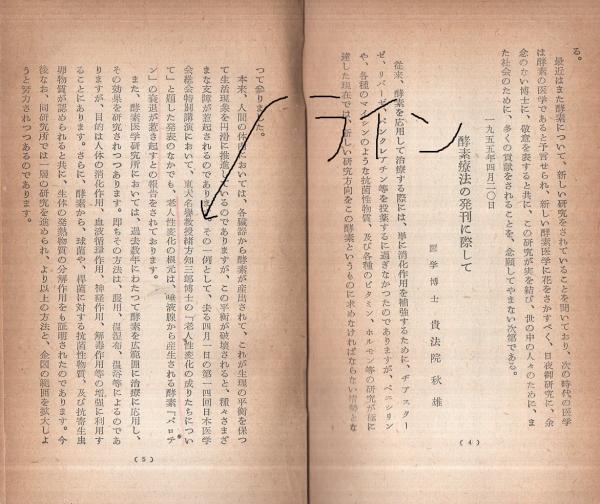 る。
最近はまた酵素について、新しい研究をされていることを聞いており、次の時代の医学
は酵素の医学であると予言せられ、新しい酵素医学に花をさかすべく、日夜御研究に、余
念のない博士に、敬意を表すると共に、この研究が実を結び、世の中の人々のために、ま
た社会のために、多くの貢献をされることを、念願してやまない次第である。
一九五五年四月二〇日
酵素療法の発刊に際して
医学博士 貴法院 秋雄
従来、酵素を応用して治療する際には、単に消化作用を補強するために、ヂアスター
ゼ、リパーゼ、パンクレアチン等を投薬するに過ぎなかつたのでありますが、ペニシリン
や、各種のマイシンのような抗菌性物質、及び各種のビタミン、ホルモン等の研究が極に
達した現在では、新しい研究方向をこの酵素というものに求めなければならない情勢とな
(4)
ライン
つて参りました。
本来、人間の体内においては、各臓器から酵素が産出されて、これが生理の平衡を保つ
て生活現象を円滑に推進しているのでありますが、この平衡が破壊されると、種々さまざ
まな支障が惹起されるのであります。その一例として、去る四月一日の第一四回日本医学
会総会特別講演において、東大名誉教授緒方知三郎博士の『老人性変化の成りたちについ
て』と題した発表のなかでも、老人性変化の根元は、唾液腺から産生される酵素『パロチ
ン』の衰退が惹き起すとの報告をされております。
また、酵素医学研究所においては、過去数年にわたつて酵素を広範囲に治療に応用し、
その効果を研究されつつあります。即ちその方法は、服用、温湿布、温浴等によるのであ
りますが、目的は人体の消化作用、血液循環作用、神経作用、解毒作用等の増強に利用す
ることにあります。さらに、酵素から、球菌や、桿菌に対する抗菌性物質、及び抗寄生虫
卵物質が認められると共に、生体の発熱物質の分解作用をも証明されたのであります。今
後なお、同研究所では一層の研究を進められ、より以上の方法と、企図の範囲を拡大しよ
うと努力されつつあるのであります。
(5)